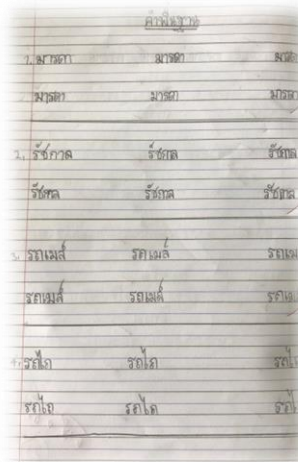 คำพื้นฐาน
1. มารดา มารดา มารดา
มารดา มารดา มารดา
2. รัชกาล รัชกาล รัชกาล
รัชกาล รัชกาล รัชกาล
3. รถเมล์ รถเมล์ รถเม
รถเมล์ รถเมล์ รถเม
4. รถไถ รถไถ รถไ
รถไถ รถไถ รถไ